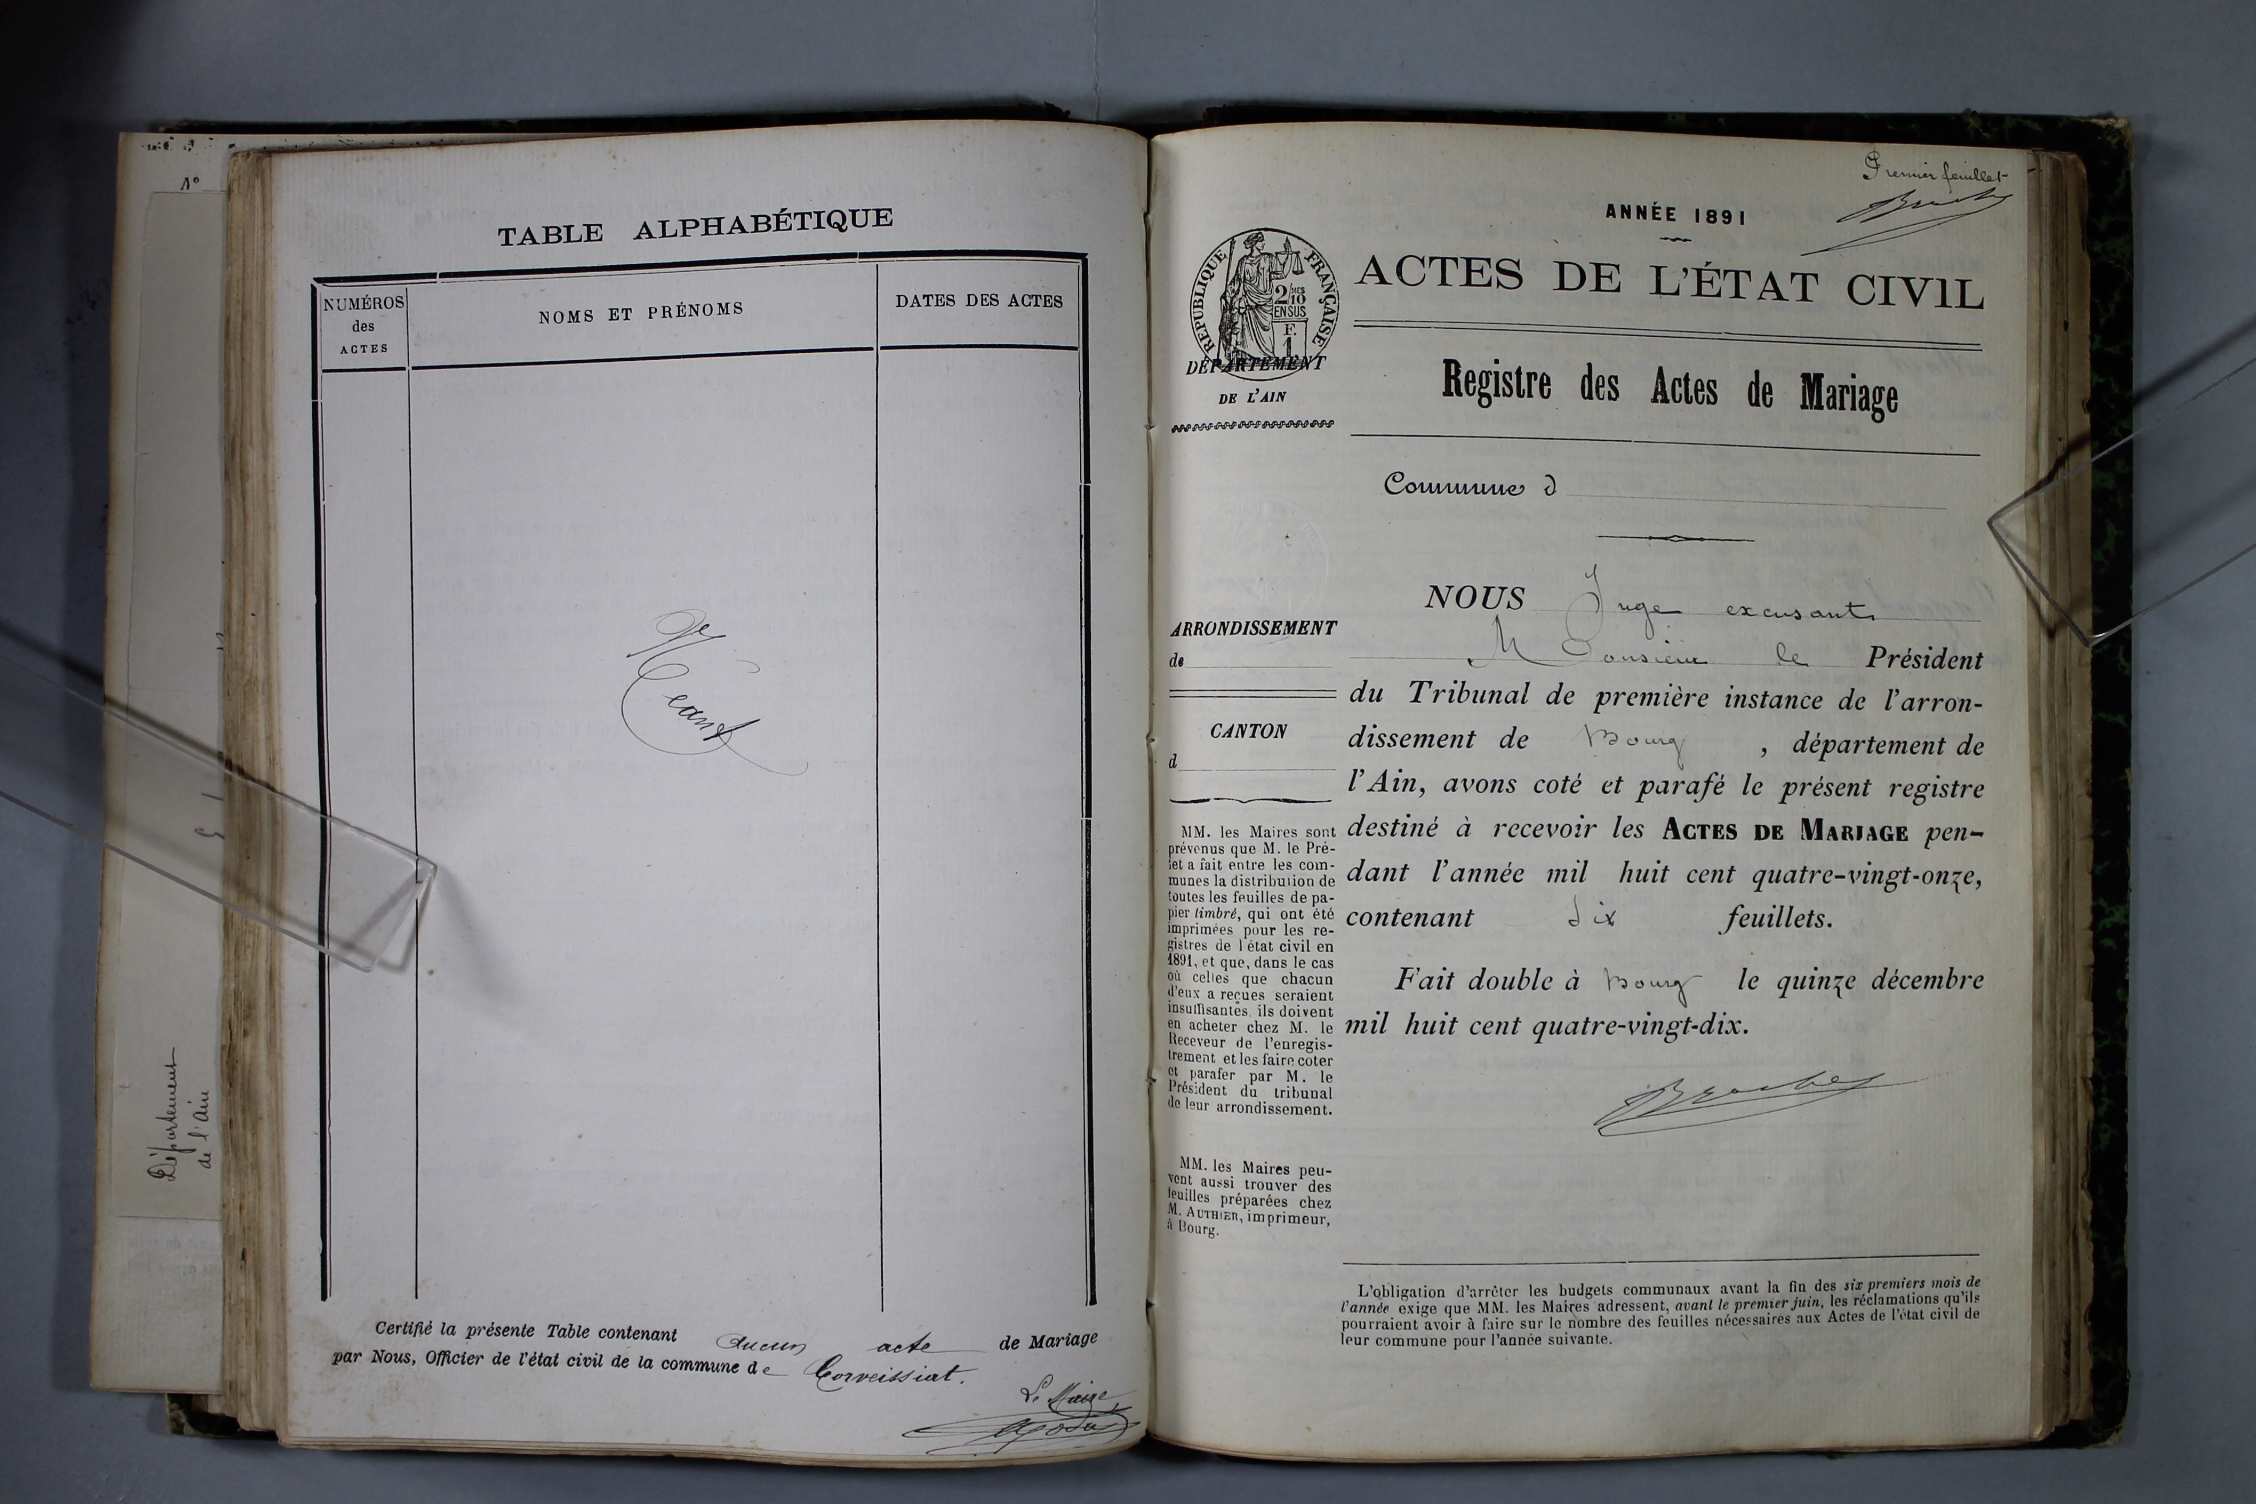 N°
Département
de l'Ain
TABLE ALPHABÉTIQUE
NUMÉROS
des
ACTES
NOMS ET PRÉNOMS
DATES DES ACTES
Néant
Certifié la présente Table contenant aucun acte de Mariage
par Nous, Officier de l'état civil de la commune de Corveissiat.
Le Maire
Premier feuillet
ANNÉE 1891
ACTES DE L'ÉTAT CIVIL
RÉPUBLIQUE FRANÇAISE
2/10 MES
EN SUS
F.
1
DÉPARTEMENT
DE L'AIN
Registre des Actes de Mariage
Commune d
ARRONDISSEMENT
de
CANTON
d
MM. les Maires sont
prévenus que M. le Pré-
fet a fait entre les com-
munes la distribution de
toutes les feuilles de pa-
pier timbré, qui ont été
imprimées pour les re-
gistres de l'état civil en
1891, et que, dans le cas
où celles que chacun
d'eux a reçues seraient
insuffisantes, ils doivent
en acheter chez M. le
Receveur de l'enregis-
trement et les faire coter
et parafer par M. le
Président du tribunal
de leur arrondissement.
MM. les Maires peu-
vent aussi trouver des
feuilles préparées chez
M. AUTHIER, imprimeur,
à Bourg.
NOUS Juge excusant
Monsieur le Président
du Tribunal de première instance de l'arron-
dissement de Bourg, département de
l'Ain, avons coté et parafé le présent registre
destiné à recevoir les ACTES DE MARIAGE pen-
dant l'année mil huit cent quatre-vingt-onze,
contenant dix feuillets.
Fait double à Bourg le quinze décembre
mil huit cent quatre-vingt-dix.
L'obligation d'arrêter les budgets communaux avant la fin des six premiers mois de
l'année exige que MM. les Maires adressent, avant le premier juin, les réclamations qu'ils
pourraient avoir à faire sur le nombre des feuilles nécessaires aux Actes de l'état civil de
leur commune pour l'année suivante.